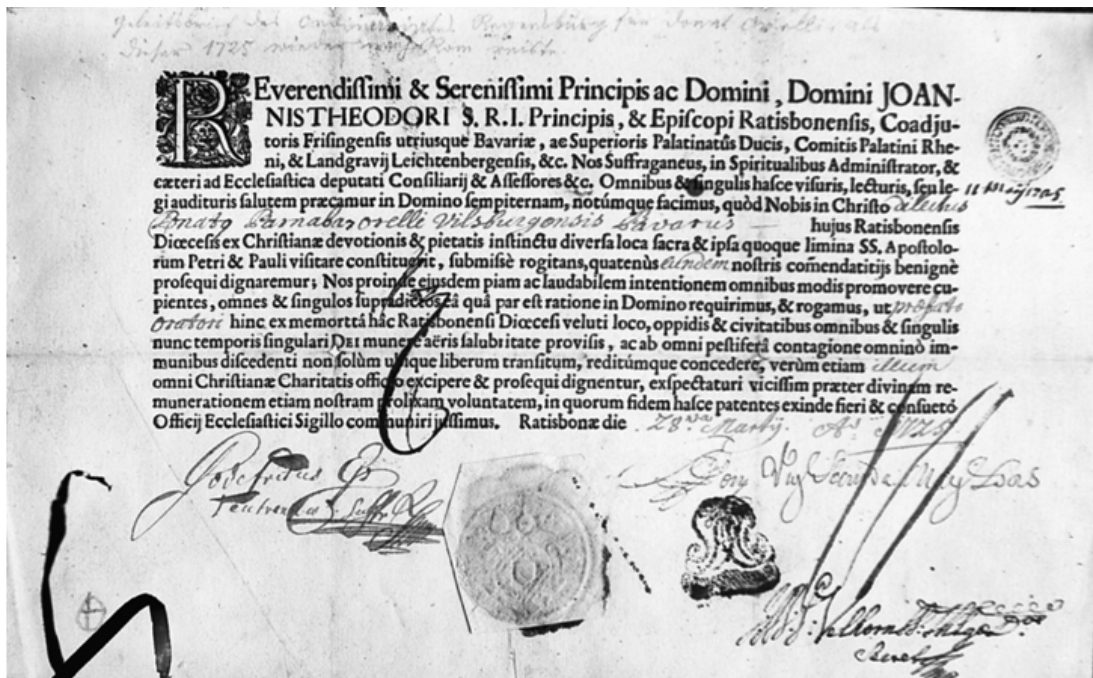 Geleitsbrief des Ordinariates Regensburg für Donat Orelli, als
dieser 1725 wieder nach Rom reiste.
REverendiſſimi & Sereniſſimi Principis ac Domini, Domini JOAN-
NIS THEODORI S. R. I. Principis, & Epiſcopi Ratisbonenſis, Coadju-
toris Friſingenſis utriuſque Bavariæ, ac Superioris Palatinatûs Ducis, Comitis Palatini Rhe-
ni, & Landgravij Leichtenbergenſis, &c. Nos Suffraganeus, in Spiritualibus Adminiſtrator, &
cæteri ad Eccleſiaſtica deputati Conſiliarij & Aſſeſſores &c. Omnibus & ſingulis haſce viſuris, lecturis, ſeu le-
gi audituris ſalutem præcamur in Domino ſempiternam, notúmque facimus, quòd Nobis in Chriſto dilectus
Donatus Barnabas Orelli Vilsburgensis Bavarus hujus Ratisbonenſis
Diœceſis ex Chriſtianæ devotionis & pietatis inſtinctu diverſa loca ſacra & ipſa quoque limina SS. Apoſtolo-
rum Petri & Pauli viſitare conſtituerit, ſubmiſsè rogitans, quatenùs eundem noſtris com̃endatitijs benignè
proſequi dignaremur; Nos proinde ejuſdem piam ac laudabilem intentionem omnibus modis promovere cu-
pientes, omnes & ſingulos ſupradictos eâ quâ par eſt ratione in Domino requirimus, & rogamus, ut præfato
Oratori hinc ex memorttâ hâc Ratisbonenſi Diœceſi veluti loco, oppidis & civitatibus omnibus & ſingulis
nunc temporis ſingulari DEI munere aëris ſalubritate proviſis, ac ab omni peſtiferâ contagione omninò im-
munibus diſcedenti non ſolùm ubique liberum tranſitum, reditúmque concedere, verùm etiam illum
omni Chriſtianæ Charitatis officio excipere & proſequi dignentur, exſpectaturi viciſſim præter divinam re-
munerationem etiam noſtram prolixam voluntatem, in quorum fidem haſce patentes exinde fieri & conſuetó
Officij Eccleſiaſtici Sigillo communiri juſſimus. Ratisbonæ die 28va Martij Ao 1725
Godefridus Ep
Suffr